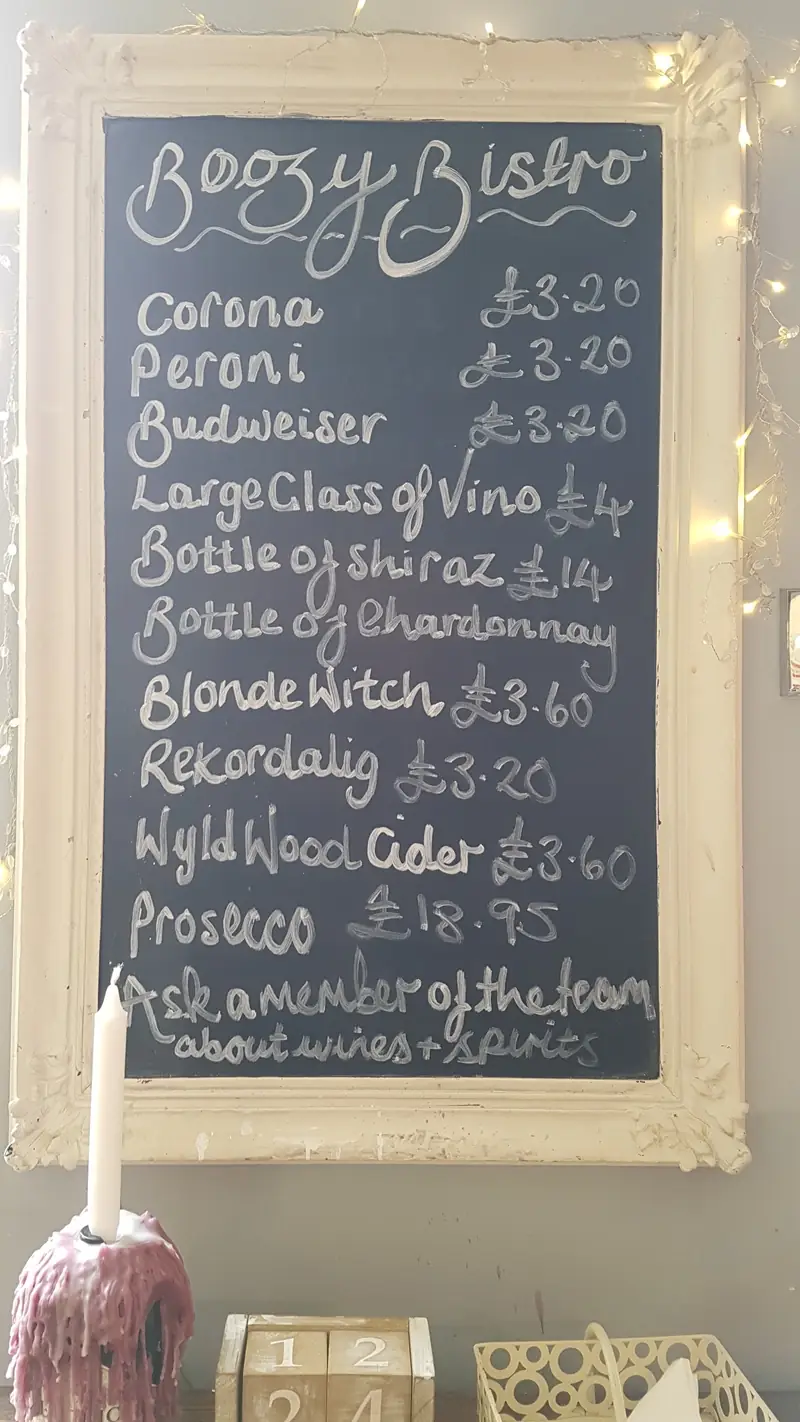 Boozy Bistro
Corona £3.20
Peroni £3.20
Budweiser £3.20
Large Glass of Vino £4
Bottle of Shiraz £14
Bottle of Chardonnay
Blonde Witch £3.60
Rekordalig £3.20
Wyld Wood Cider £3.60
Prosecco £18.95
Ask a member of the team
about wines + spirits
1 2
2 4